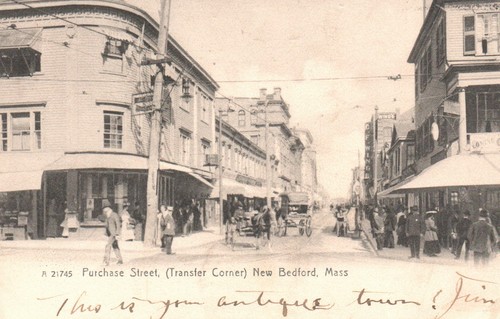 R 21745 Purchase Street, (Transfer Corner) New Bedford, Mass
This is your antique town! Jim